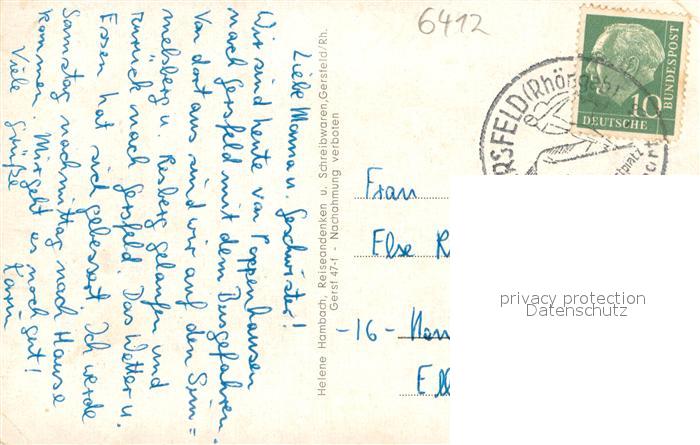 6412
Liebe Mama u. Geschwister!
Wir sind heute von Poppenhausen
nach Gersfeld mit dem Bus gefahren.
Von dort aus sind wir auf den Sim=
melsberg u. Resberg gelaufen und
zurück nach Gersfeld. Das Wetter u.
Essen hat sich gebessert. Ich werde
Samstag nachmittag nach Hause
kommen. Mir geht es noch gut!
Viele Grüße
Karin
Helene Hambach, Reiseandenken u. Schreibwaren, Gersfeld/Rh.
Gersf 47-1 Nachahmung verboten
RSFELD (Rhöngeb)
DEUTSCHE
BUNDESPOST
10
Frau
Else R
-16-
Ell
privacy protection
Datenschutz